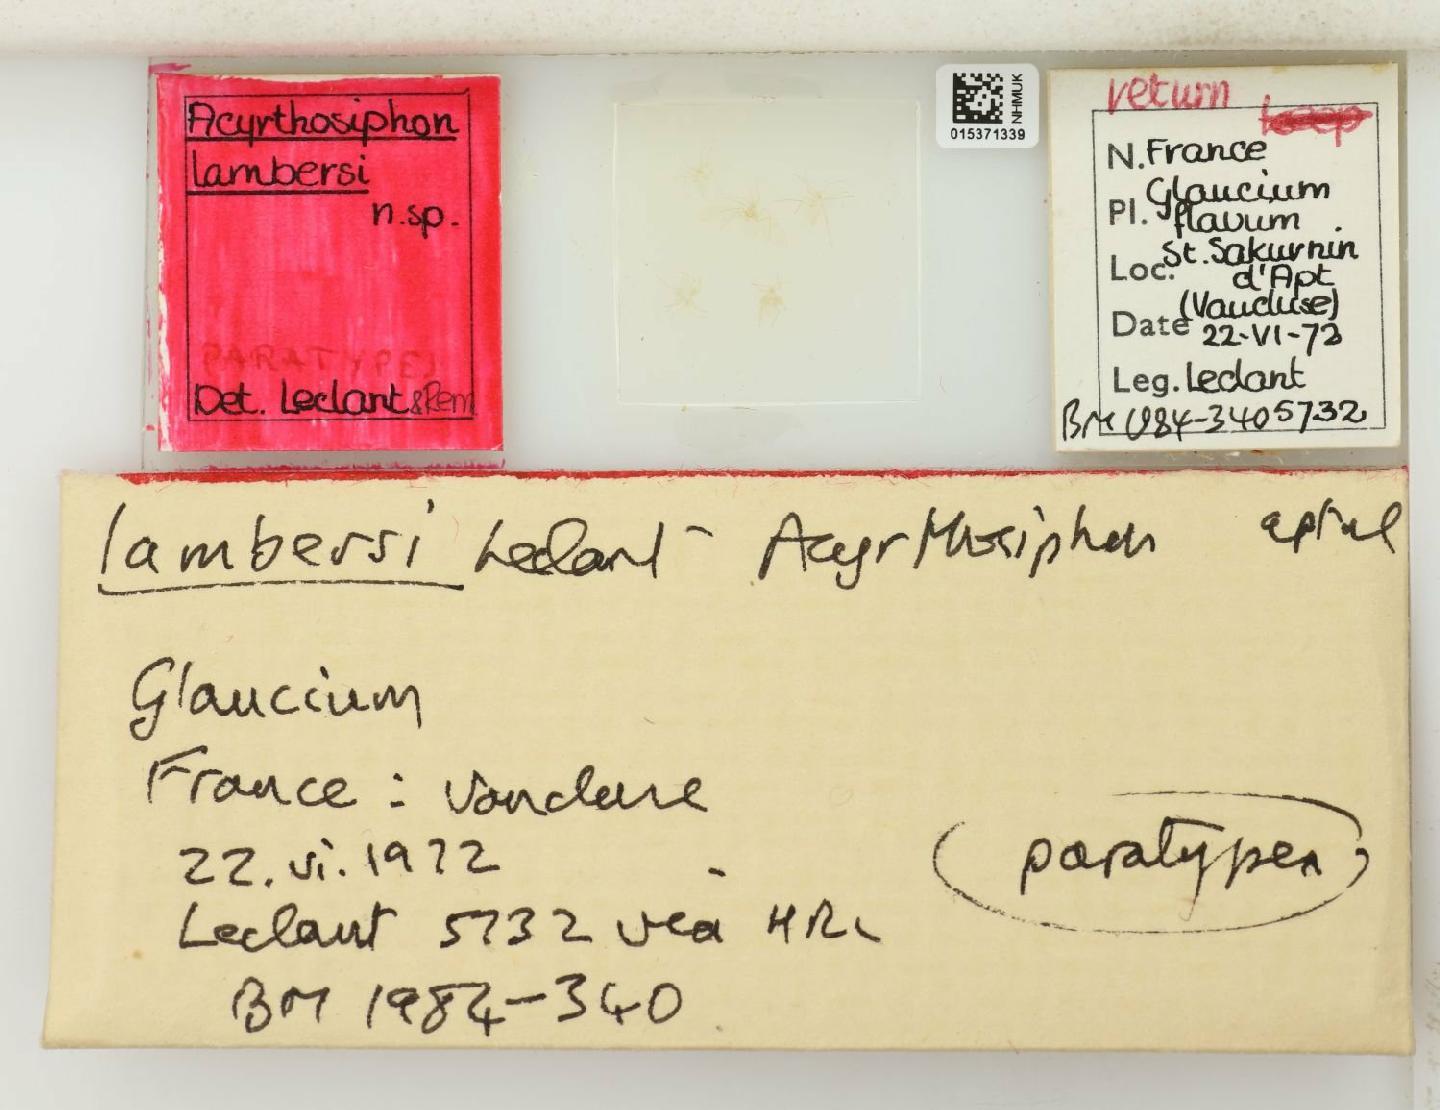 Acyrthosiphon
lambersi
n.sp.
PARATYPES
Det. Leclant & Rem
NHMUK
015371339
return
keep
N. France
Pl. Glaucium
flavum
Loc. St. Sakurnin
d'Apt
(Vaucluse)
Date 22-VI-72
Leg. Leclant
BM 1984-340 5732
lambersi Leclant - Acyrthosiphon
Glaucium
France : Vaucluse
22.vi.1972
paratypes
Leclant 5732 via HRL
BM 1984-340